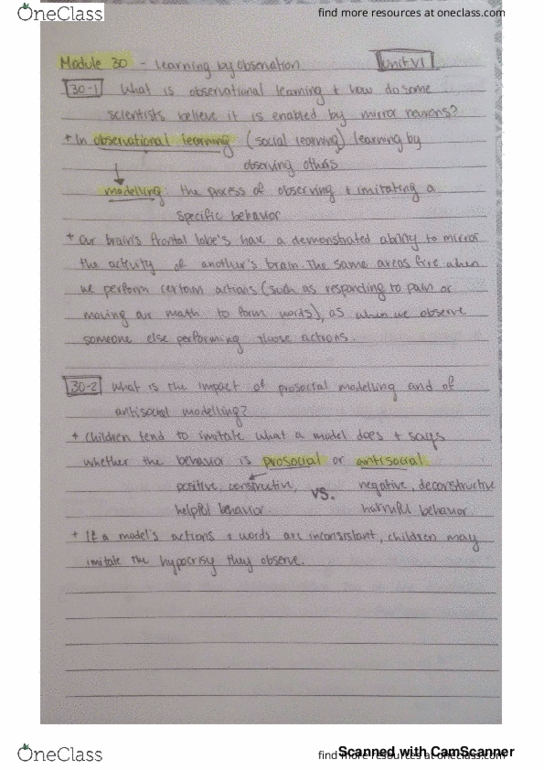 OneClass
find more resources at oneclass.com
Module 30 - Learning by observation
Unit VI
30-1 What is observational learning + how do some
scientists believe it is enabled by mirror neurons?
+ In observational learning (social learning) learning by
observing others
modelling: the process of observing + imitating a
specific behavior
+ Our brain's frontal lobe's have a demonstrated ability to mirror
the activity of another's brain. The same areas fire when
we perform certain actions (such as responding to pain or
moving our mouth to form words), as when we observe
someone else performing those actions.
30-2 What is the impact of prosocial modelling and of
antisocial modelling?
+ Children tend to imitate what a model does + says
whether the behavior is prosocial or antisocial.
positive, constructive, vs. negative, deconstructive
helpful behavior. harmful behavior.
+ If a model's actions + words are inconsistant, children may
imitate the hypocrisy they observe.
OneClass
find more resources at oneclass.com
Scanned with CamScanner